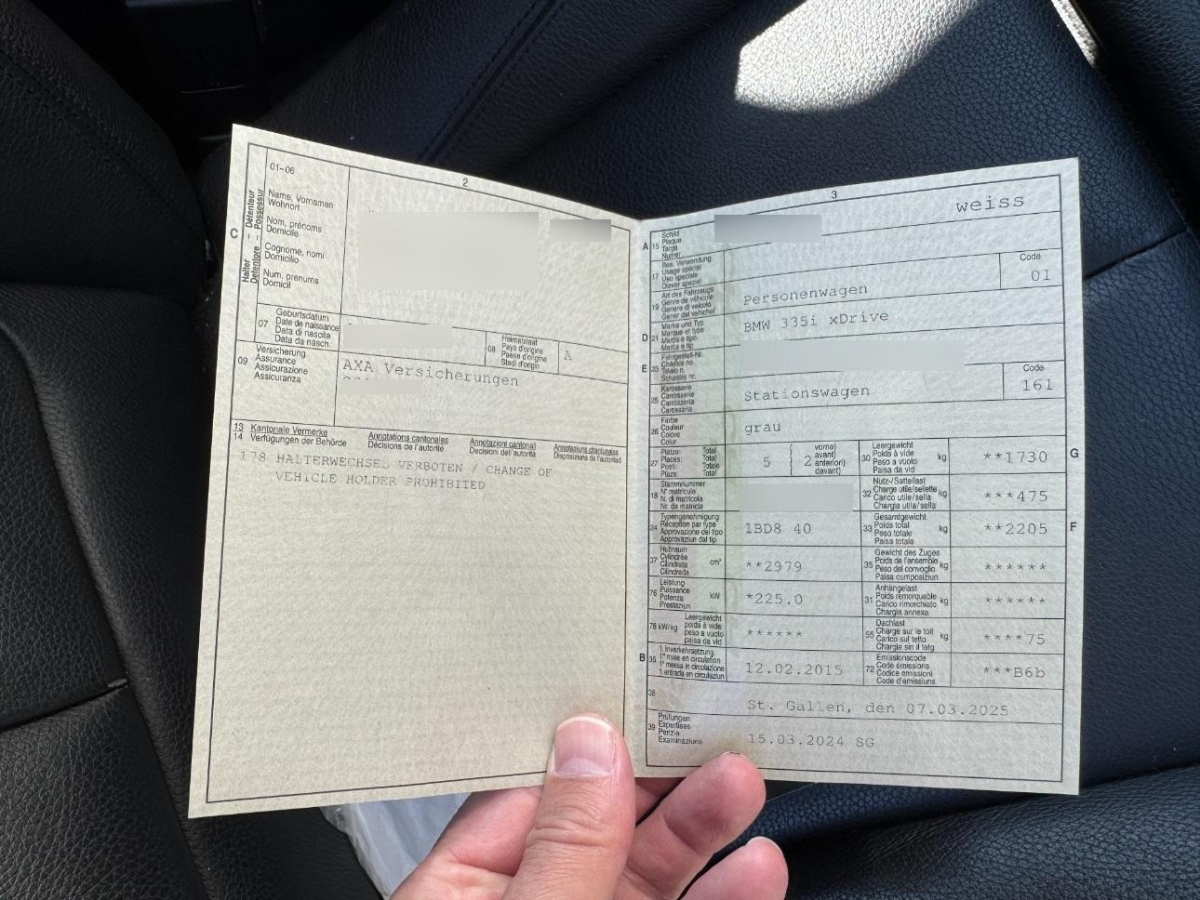 2
01-06
C
Halter Détenteur
Detentore Possessur
Name, Vornamen
Wohnort
Nom, prénoms
Domicile
Cognome, nomi
Domicilio
Num, prenums
Domicil
07
Geburtsdatum
Date de naissance
Data di nascita
Data da nasch.
08
Heimatstaat
Pays d'origine
Paese d'origine
Stadi d'origin
A
09
Versicherung
Assurance
Assicurazione
Assicuranza
AXA Versicherungen
13 Kantonale Vermerke
14 Verfügungen der Behörde
Annotations cantonales
Décisions de l'autorité
Annotazioni cantonali
Decisioni dell'autorità
Annotaziuns chantunalas
Disposiziuns da l'autoritad
178 HALTERWECHSEL VERBOTEN / CHANGE OF
VEHICLE HOLDER PROHIBITED
3
A 15
Schild
Plaque
Targa
Numer
weiss
17
Bes. Verwendung
Usage spécial
Uso speciale
Diever spezial
19
Art des Fahrzeugs
Genre de véhicule
Genere di veicolo
Gener dal vehichel
Personenwagen
Code
01
D 21
Marke und Typ
Marque et type
Marca e tipo
Marca e tip
BMW 335i xDrive
E 23
Fahrgestell-Nr.
Châssis no
Telaio n.
Schassis nr.
25
Karosserie
Carrosserie
Carrozzeria
Carossaria
Stationswagen
Code
161
26
Farbe
Couleur
Colore
Colur
grau
27
Plätze: Total
Places: Total
Posti: Totale
Plazs: Total
5
2
vorne)
avant)
anteriori)
davant)
30
Leergewicht
Poids à vide
Peso a vuoto
Paisa da vid
kg
**1730
G
18
Stammnummer
N° matricule
N. di matricola
Nr. da matricla
32
Nutz-/Sattellast
Charge utile/sellette
Carico utile/sella
Chargia utila/sella
kg
***475
24
Typengenehmigung
Réception par type
Approvazione del tipo
Approvaziun dal tip
1BD8 40
33
Gesamtgewicht
Poids total
Peso totale
Paisa totala
kg
**2205
F
37
Hubraum
Cylindrée
Cilindrata
Cilindrada
cm³
**2979
35
Gewicht des Zuges
Poids de l'ensemble
Peso del convoglio
Paisa cumposiziun
kg
******
76
Leistung
Puissance
Potenza
Prestaziun
kW
*225.0
31
Anhängelast
Poids remorquable
Carico rimorchiato
Chargia annexa
kg
******
78 kW/kg
Leergewicht
poids à vide
peso a vuoto
paisa da vid
******
55
Dachlast
Charge sur le toit
Carico sul tetto
Chargia sin il tetg
kg
****75
B 36
1. Inverkehrsetzung
1re mise en circulation
1a messa in circolazione
1. entrada en circulaziun
12.02.2015
72
Emissionscode
Code émissions
Codice emissioni
Code d'emissiuns
***B6b
38
St. Gallen, den 07.03.2025
39
Prüfungen
Expertises
Perizie
Examinaziuns
15.03.2024 SG